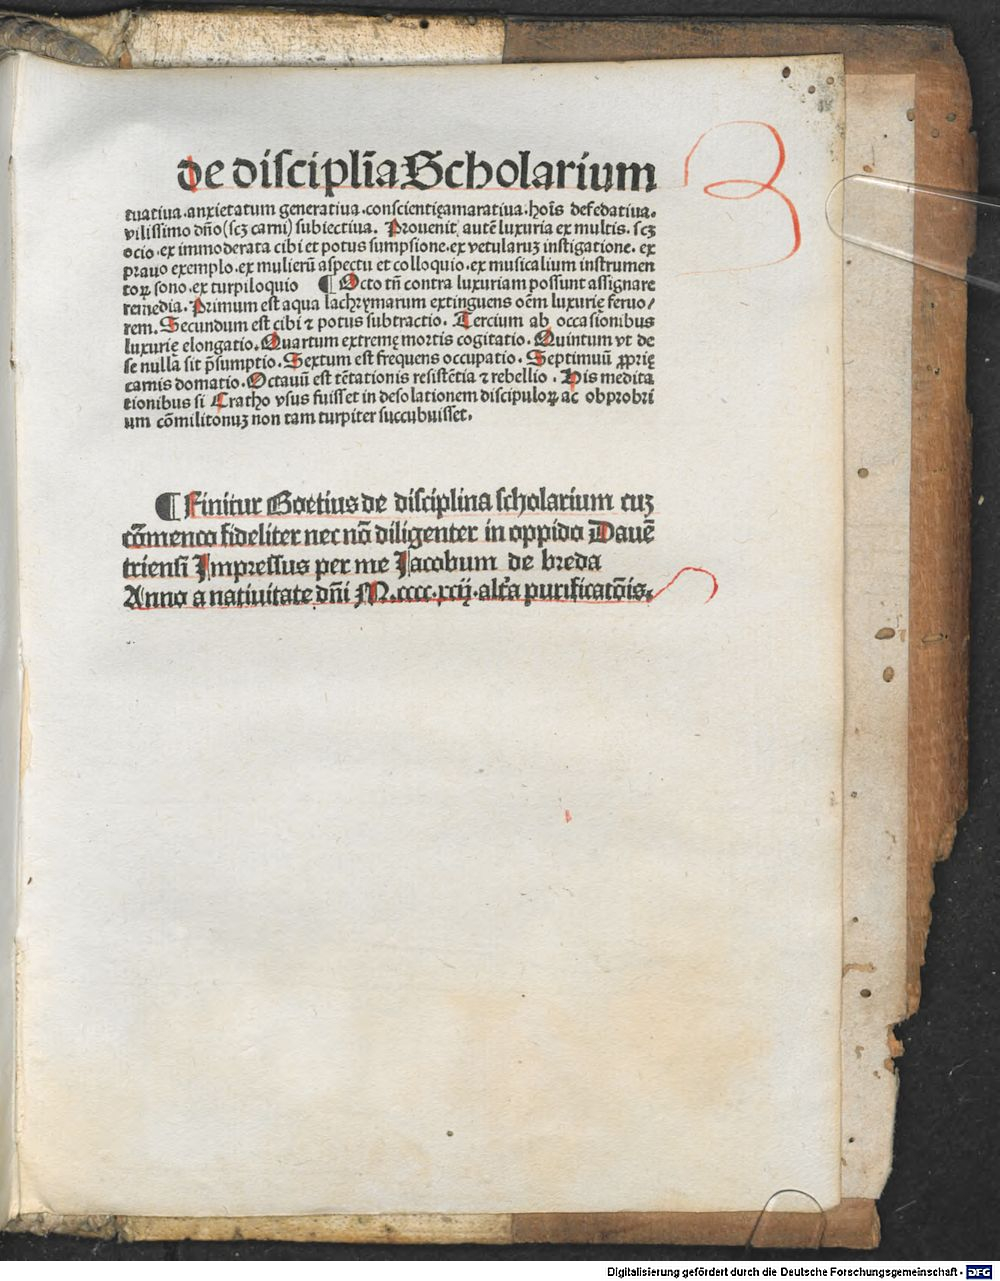 de discipl̄ia Scholarium
tuatiua.anxietatum generatiua.conscientięamaratiua.hoīs defedatiua.
vilissimo dn̄o (scꝫ carni) subiectiua. Prouenit autē luxuria ex multis. scꝫ
ocio.ex immoderata cibi et potus sumpsione.ex vetularuꝫ instigatione. ex
prauo exemplo.ex mulierū aspectu et colloquio.ex musicalium instrumen
toꝝ sono.ex turpiloquio ¶ Octo tn̄ contra luxuriam possunt assignare
remedia. Primum est aqua lachrymarum extinguens oēm luxurię feruo/
rem. Secundum est cibi ⁊ potus subtractio. Tercium ab occasionibus
luxurię elongatio. Quartum extremę mortis cogitatio. Quintum vt de
se nulla sit p̄sumptio. Sextum est frequens occupatio. Septimuū ꝓprię
carnis domatio. Octauū est tētationis resistētia ⁊ rebellio. His medita
tionibus si Cratho vsus fuisset in desolationem discipuloꝝ ac obprobri
um cōmilitonuꝫ non tam turpiter succubuisset.
¶ Finitur Boetius de disciplina scholarium cuꝫ
cōmento fideliter nec nō diligenter in oppido Dauē
triensi Impressus per me Jacobum de breda
Anno a natiuitate dn̄i M.cccc.xcij.alt̄a purificatōis.
Digitalisierung gefördert durch die Deutsche Forschungsgemeinschaft - DFG